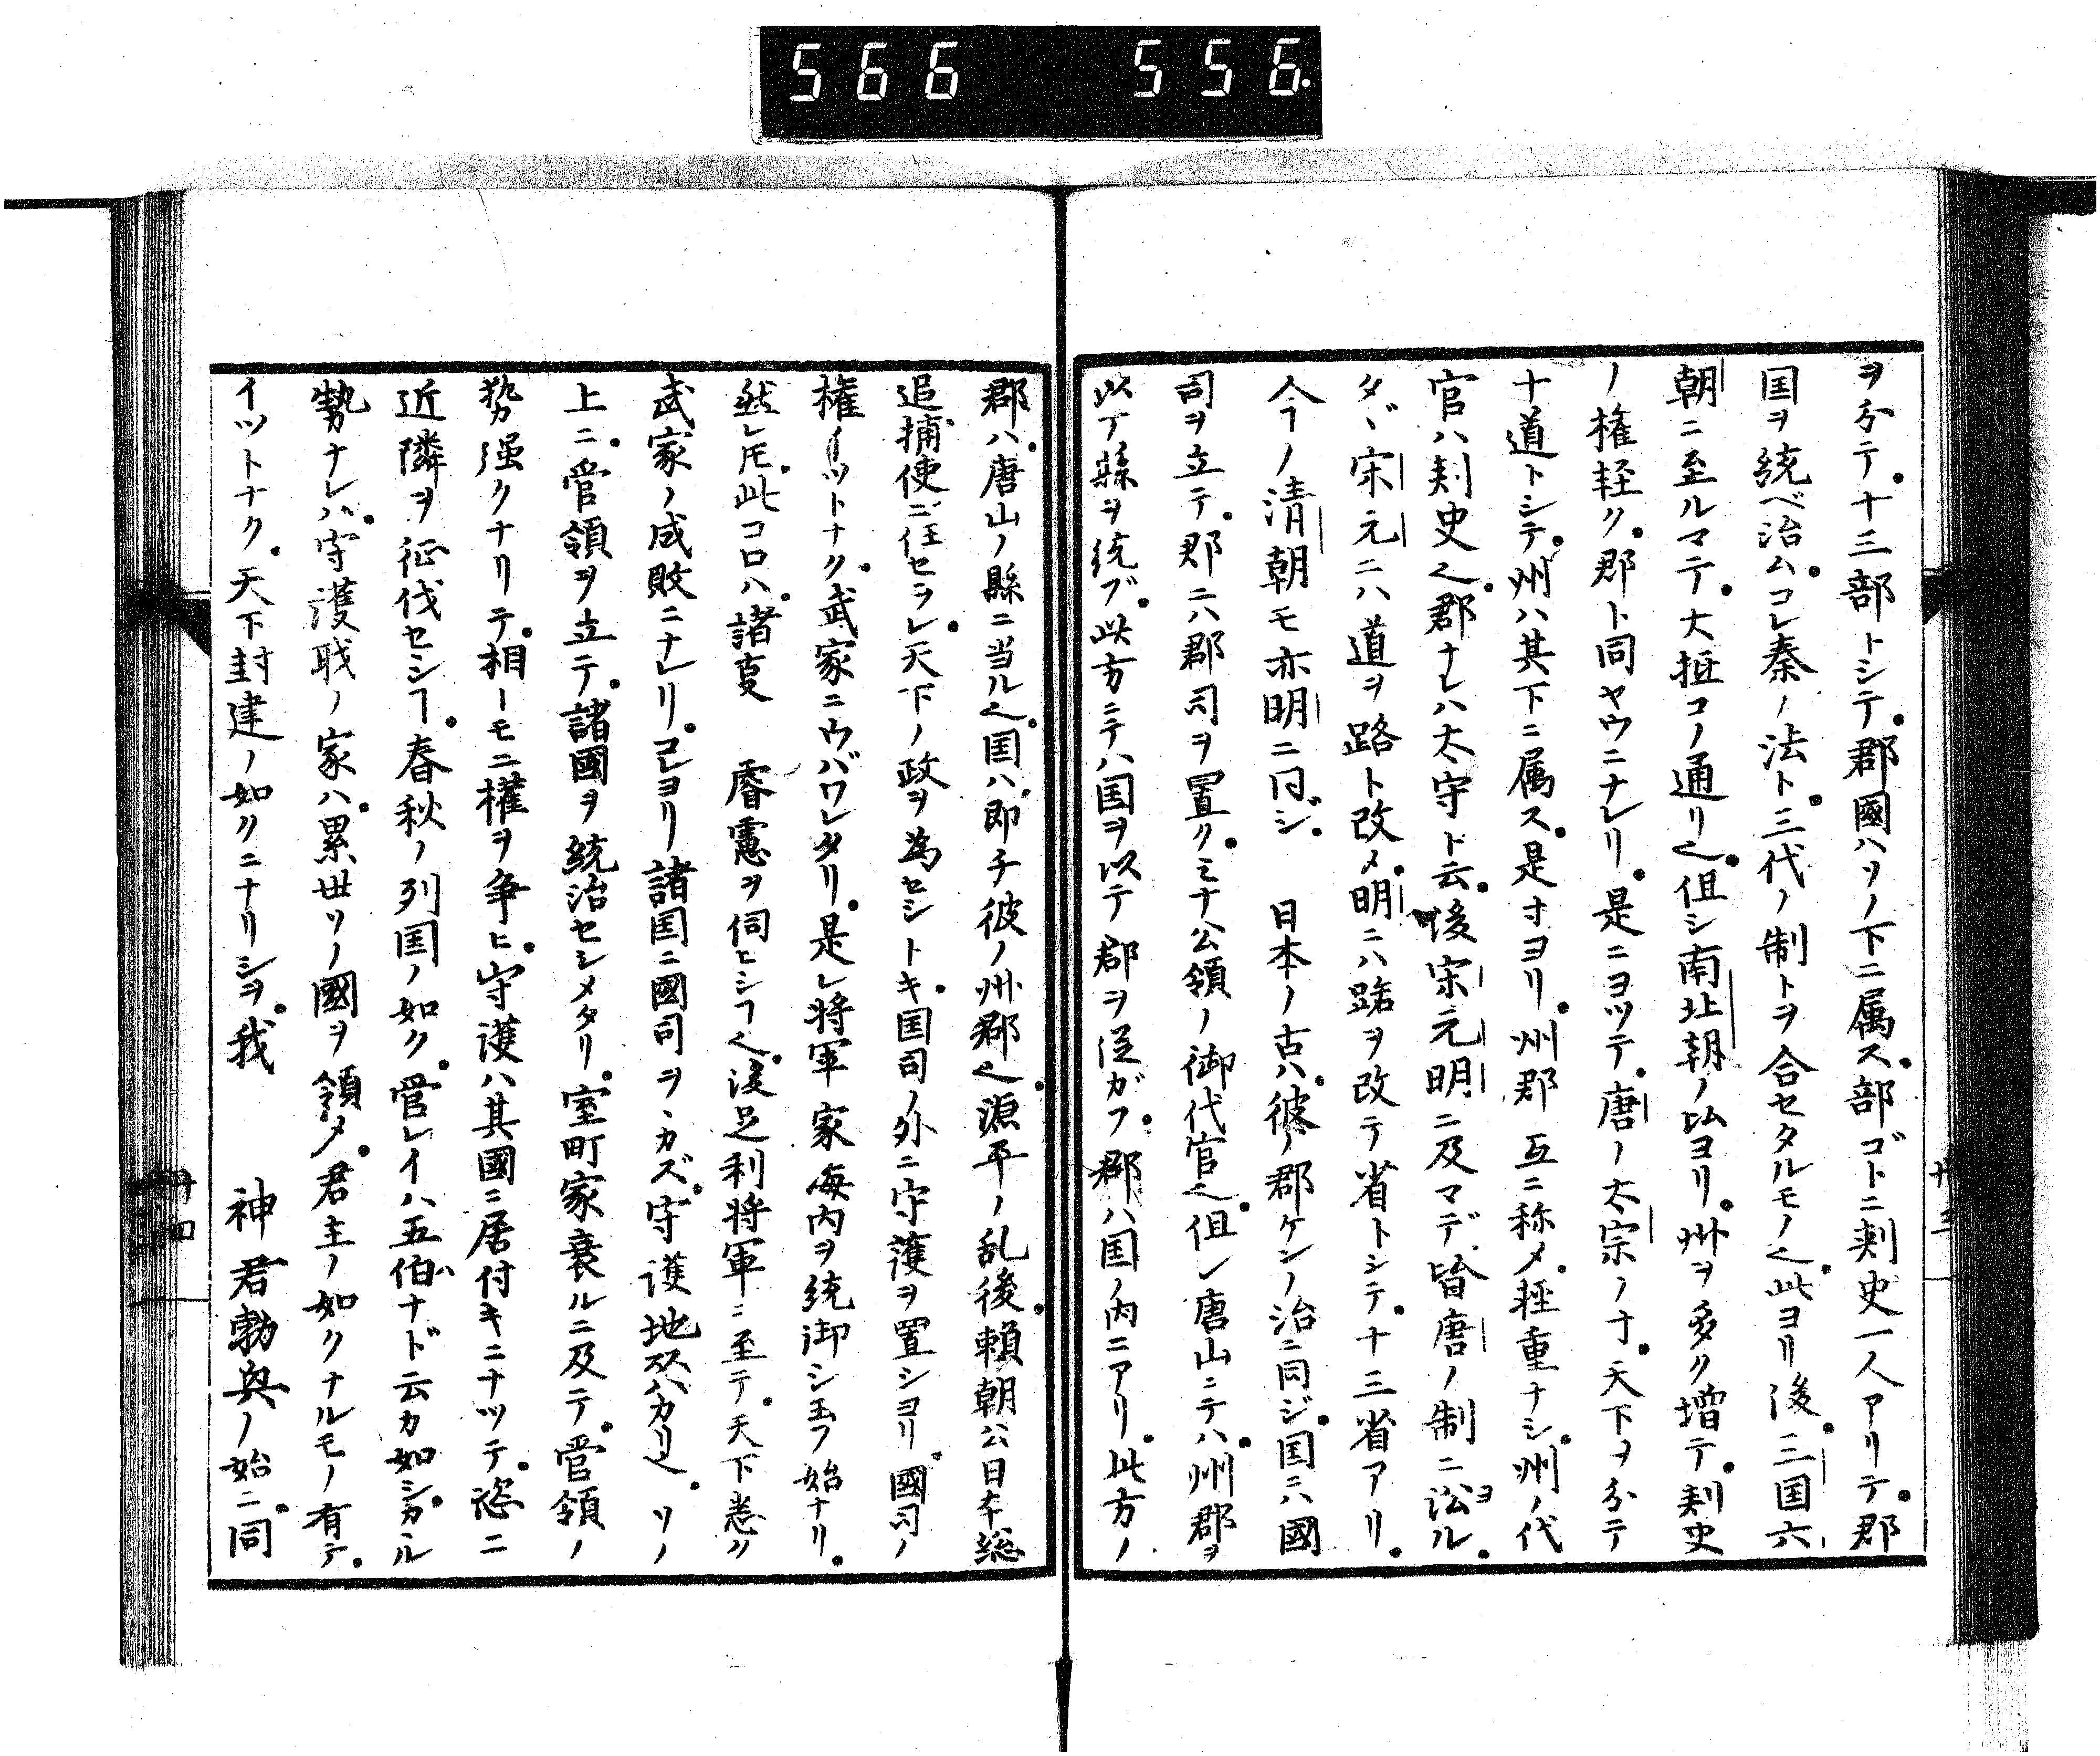 566 556.
ヲ分テ。十三部トシテ。郡國ハソノ下ニ属ス。部ゴトニ刺史一人アリテ。郡
国ヲ統ベ治ム。コレ秦ノ法ト。三代ノ制トヲ合セタルモノ也。此ヨリ後。三国六
朝ニ至ルマテ。大抵コノ通リ也。但シ南北朝ノ比ヨリ。州ヲ多ク増テ。刺史
ノ権軽ク。郡ト同ヤウニナレリ。是ニヨツテ。唐ノ太宗ノ寸。天下ヲ分テ
十道トシテ。州ハ其下ニ属ス。是寸ヨリ。州郡互ニ称メ。軽重ナシ。州ノ代
官ハ刺史也。郡ナレハ太守ト云。後宋元明ニ及マデ。皆唐ノ制ニ沿ヨル。
タヾ宋元ニハ道ヲ路ト改メ。明ニハ路ヲ改テ省トシテ。十三省アリ。
今ノ清朝モ亦明ニ同ジ。日本ノ古ハ。彼ノ郡ケンノ治ニ同ジ。国ニハ國
司ヲ立テ。郡ニハ郡司ヲ置ク。ミナ公領ノ御代官也。但シ唐山ニテハ。州郡ヲ
以テ縣ヲ統ブ。此方ニテハ国ヲ以テ郡ヲ従ガフ。郡ハ国ノ内ニアリ。此方ノ
郡ハ。唐山ノ縣ニ当ル也。国ハ。即チ彼ノ州郡也。源平ノ乱後。頼朝公日本総
追捕使ニ任セラレ。天下ノ政ヲ為セシトキ。国司ノ外ニ守護ヲ置シヨリ。國司ノ
権イツトナク。武家ニウバワレタリ。是レ将軍家海内ヲ統御シ玉フ始ナリ。
然レ𪜈。此コロハ。諸亊 睿慮ヲ伺ヒシヿ也。後足利将軍ニ至テ。天下悉ク
武家ノ成敗ニナレリ。己ヨリ諸国ニ國司ヲヽカズ。守護地头ハカリ也。ソノ
上ニ。管領ヲ立テ。諸國ヲ統治セシメタリ。室町家衰ルニ及テ。管領ノ
勢强クナリテ。相トモニ權ヲ争ヒ。守護ハ其國ニ居付キニナツテ。恣ニ
近隣ヲ征伐セシヿ。春秋ノ列国ノ如ク。管レイハ五伯ハナド云カ如シ。カヽル
勢ナレハ。守護職ノ家ハ。累世ソノ國ヲ領メ。君主ノ如クナルモノ有テ。
イツトナク。天下封建ノ如クニナリシヲ。我 神君勃興ノ始ニ。同
丗三
丗四